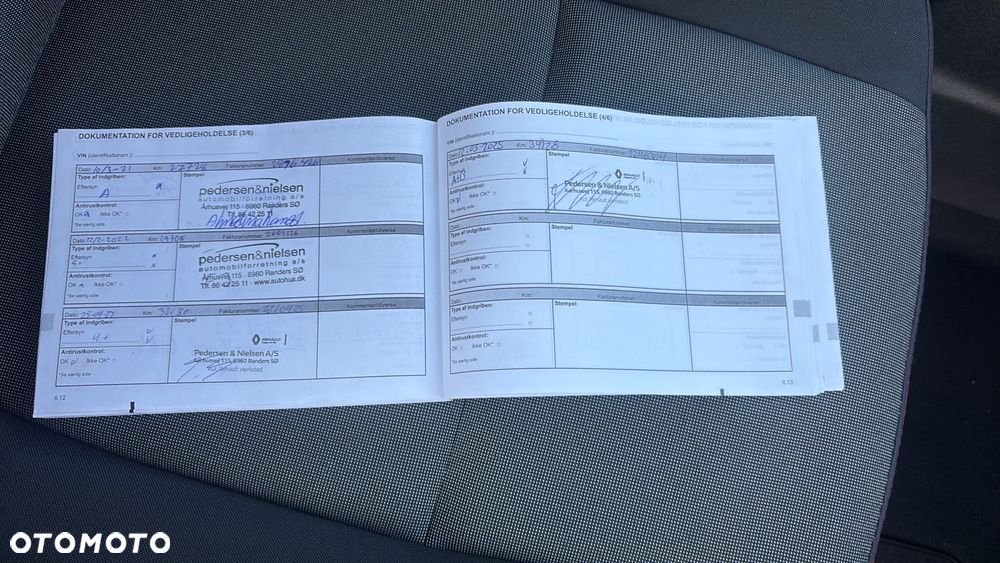 DOKUMENTATION FOR VEDLIGEHOLDELSE (3/6)
VIN (identifikationsnr.):
Dato: 10/3-21 Km: 27728 Fakturanummer: Kommentar/diverse
Type af indgriben: Stempel
Eftersyn
A
pedersen&nielsen
automobilforretning a/s
Århusvej 115 - 8960 Randers SØ
Tlf. 86 42 25 11
Antirustkontrol:
OK Ikke OK*
*Se særlig side
Dato: 22/2-2022 Km: 29705 Fakturanummer: Kommentar/diverse
Type af indgriben: Stempel
Eftersyn
pedersen&nielsen
automobilforretning a/s
Århusvej 115 - 8960 Randers SØ
Tlf. 86 42 25 11 - www.autohus.dk
Antirustkontrol:
OK Ikke OK*
*Se særlig side
Dato: Km: Fakturanummer: Kommentar/diverse
Type af indgriben: Stempel
Eftersyn
RENAULT
Pedersen & Nielsen A/S
Århusvej 115, 8960 Randers SØ
Aut. Renault værksted
Antirustkontrol:
OK Ikke OK*
*Se særlig side
6.12
DOKUMENTATION FOR VEDLIGEHOLDELSE (4/6)
VIN (identifikationsnr.):
Dato: Km: Fakturanummer: Kommentar/diverse
Type af indgriben: Stempel
Eftersyn
A+B
RENAULT
Pedersen & Nielsen A/S
Århusvej 115, 8960 Randers SØ
Aut. Renault værksted
Antirustkontrol:
OK Ikke OK*
*Se særlig side
Dato: Km: Fakturanummer: Kommentar/diverse
Type af indgriben: Stempel
Eftersyn
Antirustkontrol:
OK Ikke OK*
*Se særlig side
Dato: Km: Fakturanummer: Kommentar/diverse
Type af indgriben: Stempel
Eftersyn
Antirustkontrol:
OK Ikke OK*
*Se særlig side
6.13
OTOMOTO